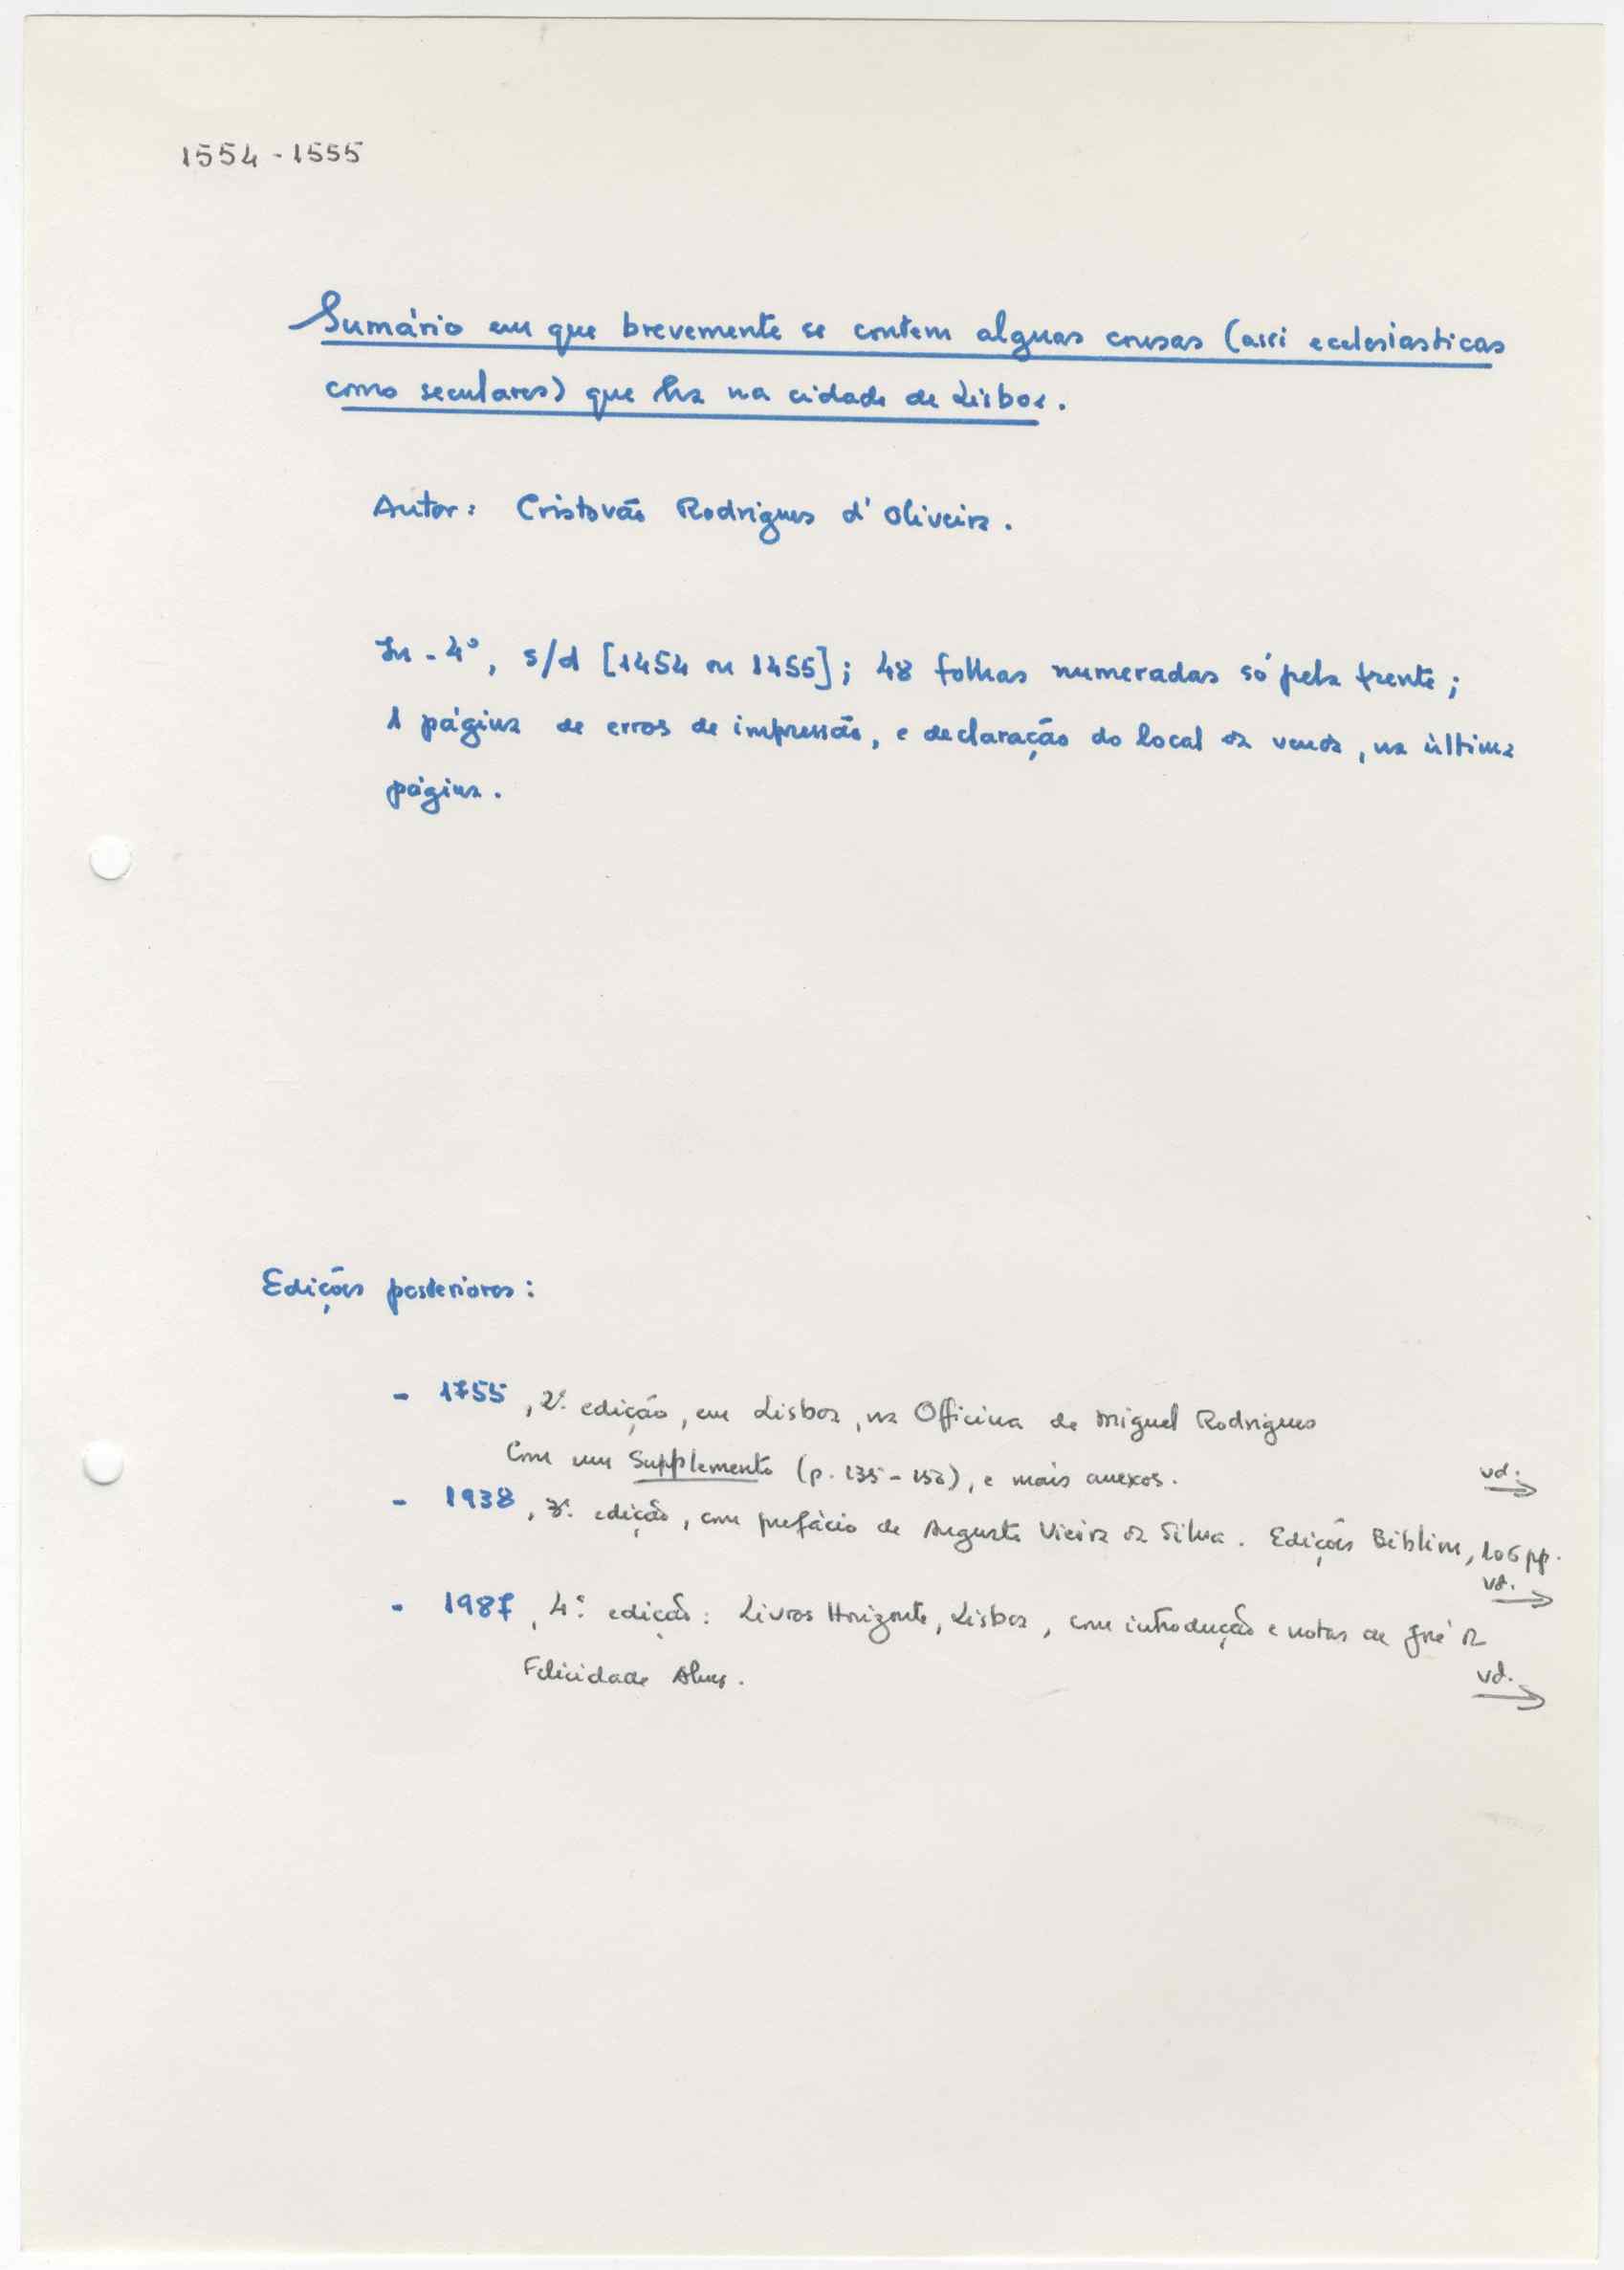 1554 - 1555
Sumário em que brevemente se contem alguas cousas (assi ecclesiasticas
como seculares) que ha na cidade de Lisboa.
Autor: Cristovão Rodrigues d'Oliveira.
In - 4º, s/d [1454 ou 1455]; 48 folhas numeradas só pela frente;
1 página de erros de impressão, e declaração do local da venda, na última
página.
Edições posteriores:
- 1755, 2ª edição, em Lisboa, na Officina de Miguel Rodrigues
Com um Supplemento (p. 135 - ), e mais anexos.
vd. →
- 1938, 3ª edição, com prefácio de Augusto Vieira da Silva. Edições Biblion, 106 pp.
vd. →
- 1987, 4ª edição: Livros Horizonte, Lisboa, com introdução e notas de José da
Felicidade Alves.
vd. →